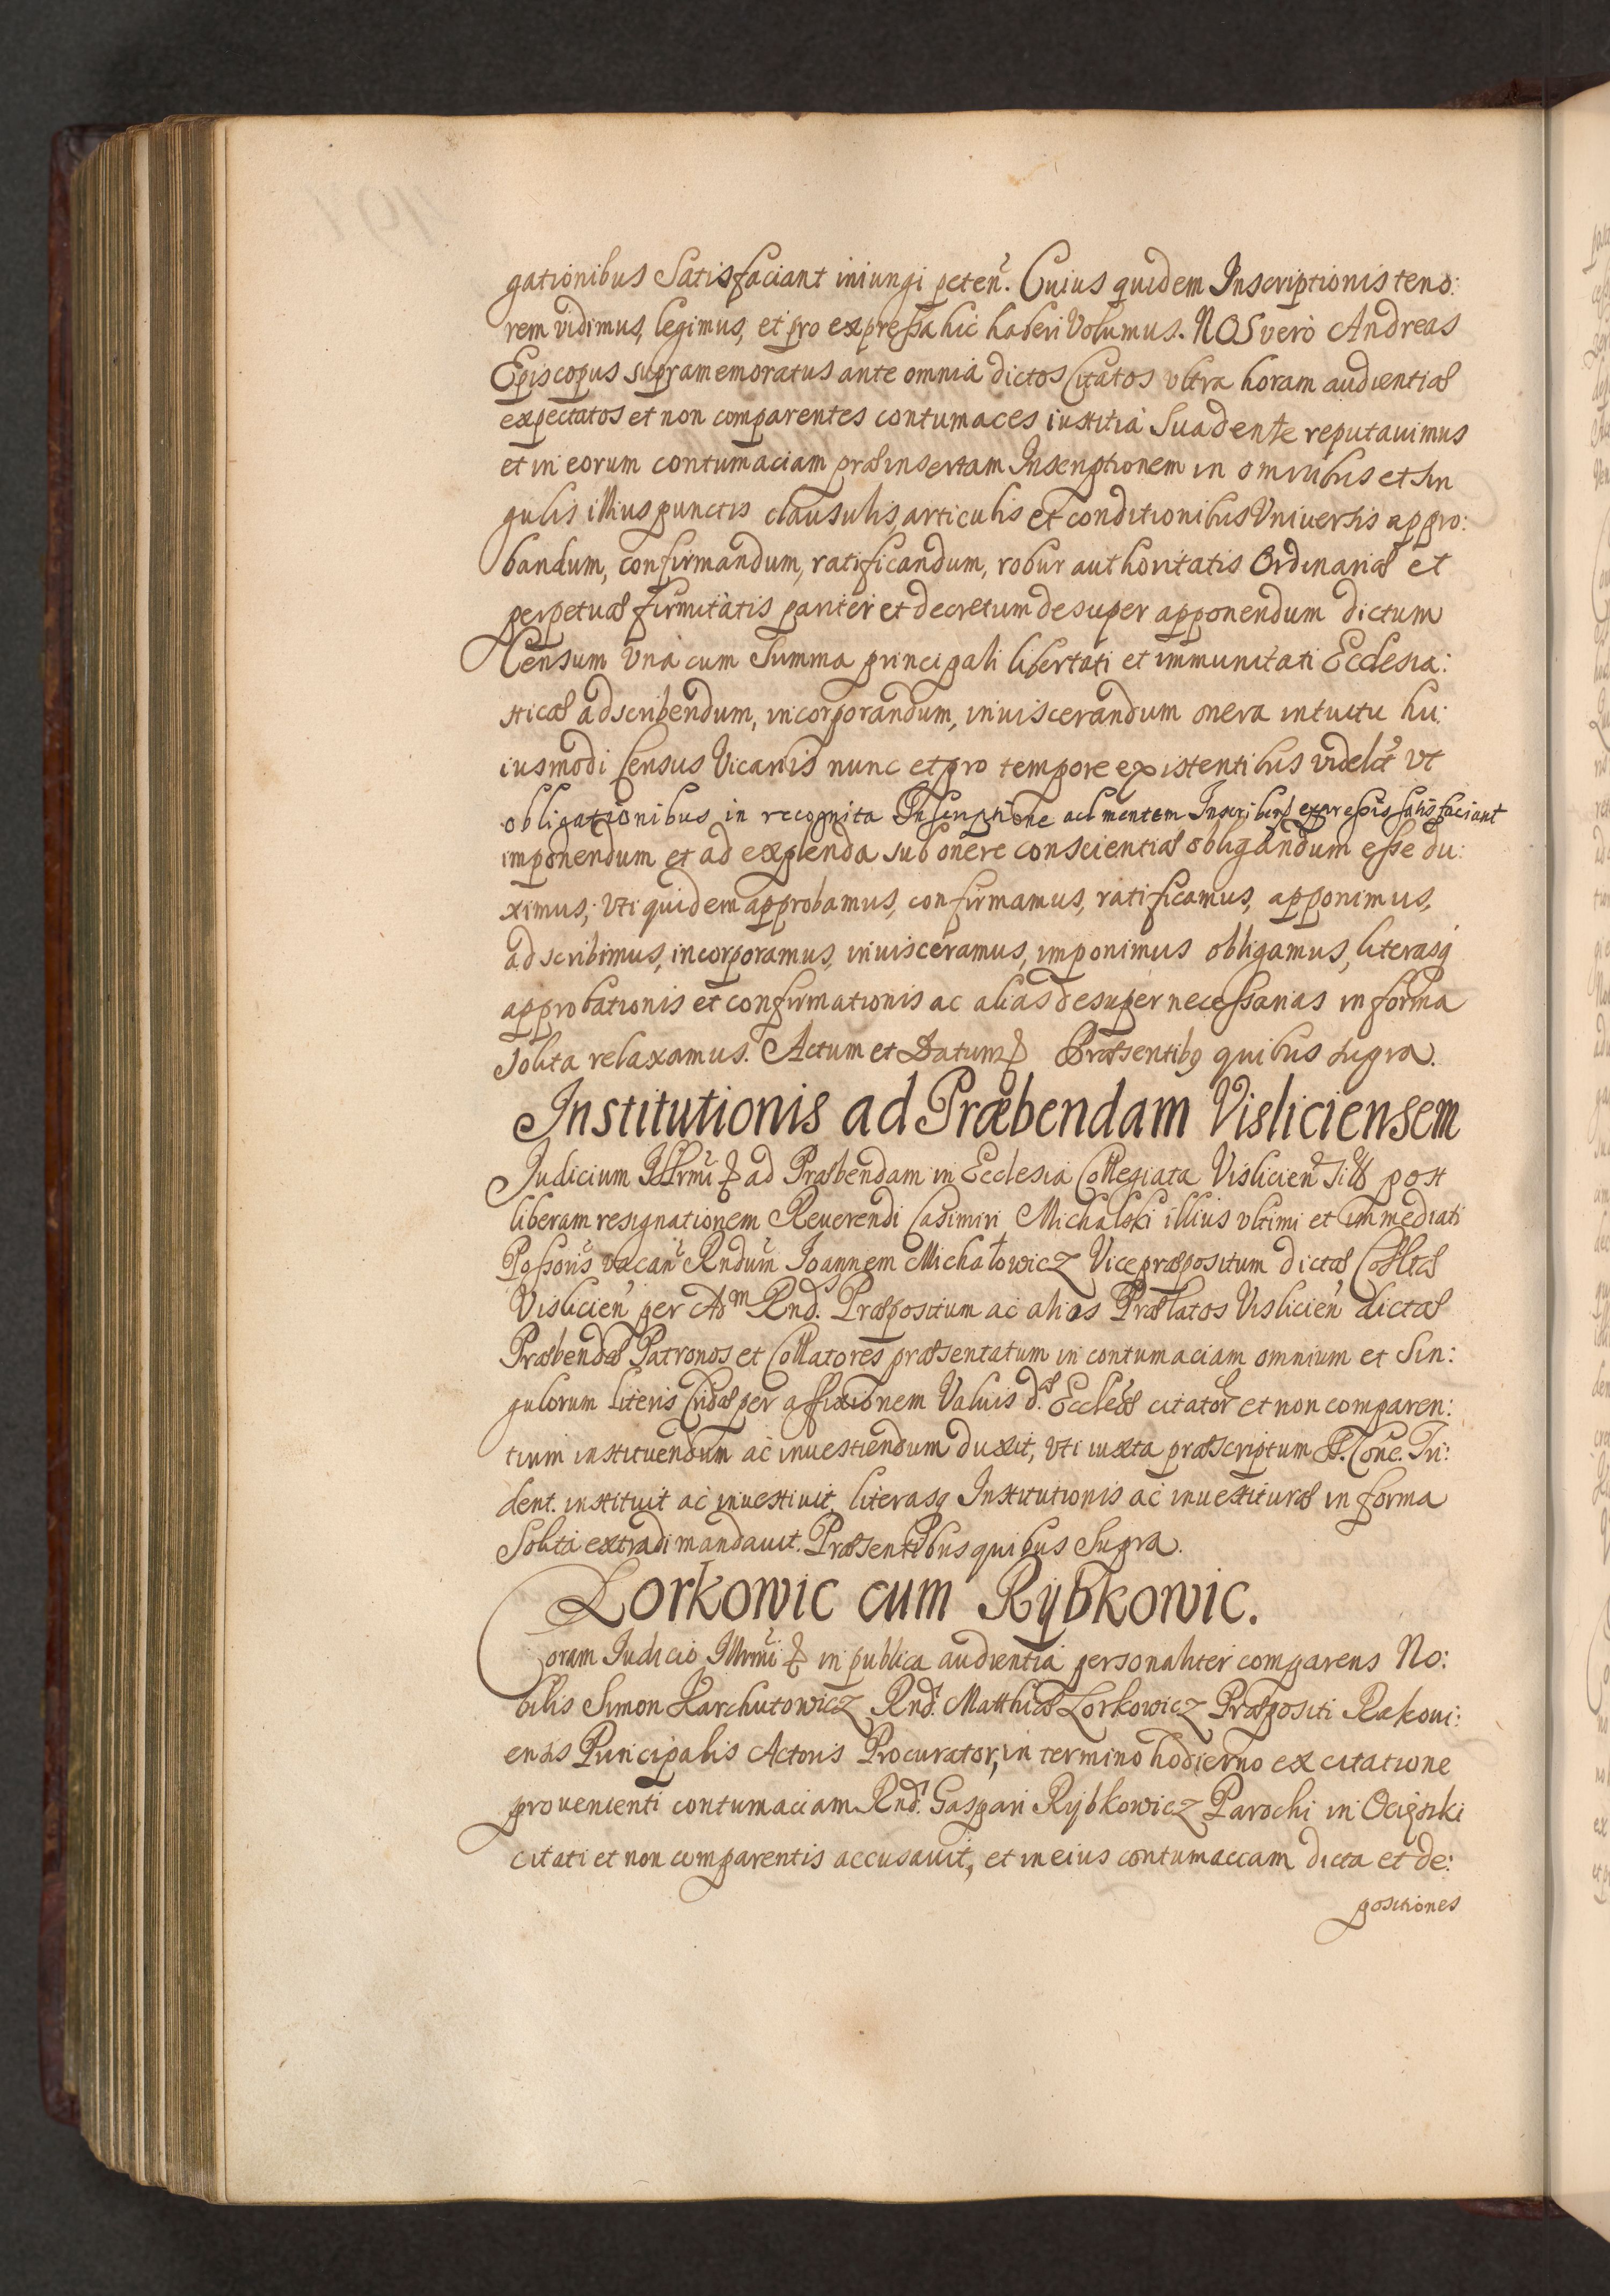 gationibus Satisfaciant iniungi peteñ. Cuius quidem Inscriptionis teno:
rem vidimus, legimus, et pro expressa hic haberi Volumus. NOS verò Andreas
Episcopus supramemoratus ante omnia dictos Citatos vltra horam audientiæ
expectatos et non comparentes contumaces iustitia Suadente reputauimus
et in eorum contumaciam præinsertam Inscriptionem in omnibus et sin
gulis illius punctis clausulis articulis et conditionibus Vniuersis appro:
bandum, confirmandum, ratificandum, robur authoritatis Ordinariæ et
perpetuæ firmitatis pariter et decretum desuper apponendum dictum
Censum vnà cum Summa principali libertati et immunitati Ecclesia:
sticæ adscribendum, incorporandum, inuiscerandum onera intuitu hu:
iusmodi Census Vicariis nunc et pro tempore existentibus videlt vt
obligationibus in recognita Inscriptione ad mentem Inscriben expressis satisfaciant
imponendum et ad explenda sub onere conscientiæ obligandum esse du:
ximus, vti quidem approbamus, confirmamus, ratificamus, apponimus,
adscribimus, incorporamus, inuisceramus, imponimus obligamus, literasq
approbationis et confirmationis ac alias desuper necessarias in forma
solita relaxamus. Actum et Datum Præsentibq quibus supra.
Institutionis ad Præbendam Visliciensem
Judicium Illrmi ad Præbendam in Ecclesia Collegiata Vislicien post
liberam resignationem Reuerendi Casimiri Michalski illius vltimi et immediati
Possoris vacañ Rndum Joannem Michałowicz Vicepræpositum dictæ Colltæ
Vislicien per Adm Rnd. Præpositum ac alios Prælatos Vislicien dictæ
Præbendæ Patronos et Collatores præsentatum in contumaciam omnium et Sin:
gulorum Literis Cridæ per affixionem Valuis d. Eccleæ citator et non comparen:
tium instituendum ac inuestiendum duxit, vti iuxta præscriptum S. Conc. Tri:
dent. instituit ac inuestiuit, literasq Institutionis ac inuestituræ in forma
Solita extradi mandauit. Præsentibus quibus Supra.
Lorkowic cum Rybkowic.
Coram Judicio Illrmi in publica audientia personaliter comparens No:
bilis Simon Karchutowicz Rnd. Matthiæ Lorkowicz Præpositi Rakoui:
ensis Principalis Actoris Procurator, in termino hodierno ex citatione
prouenienti contumaciam Rnd. Gaspari Rybkowicz Parochi in Ocięski
citati et non comparentis accusauit, et in eius contumaciam dicta et de:
positiones